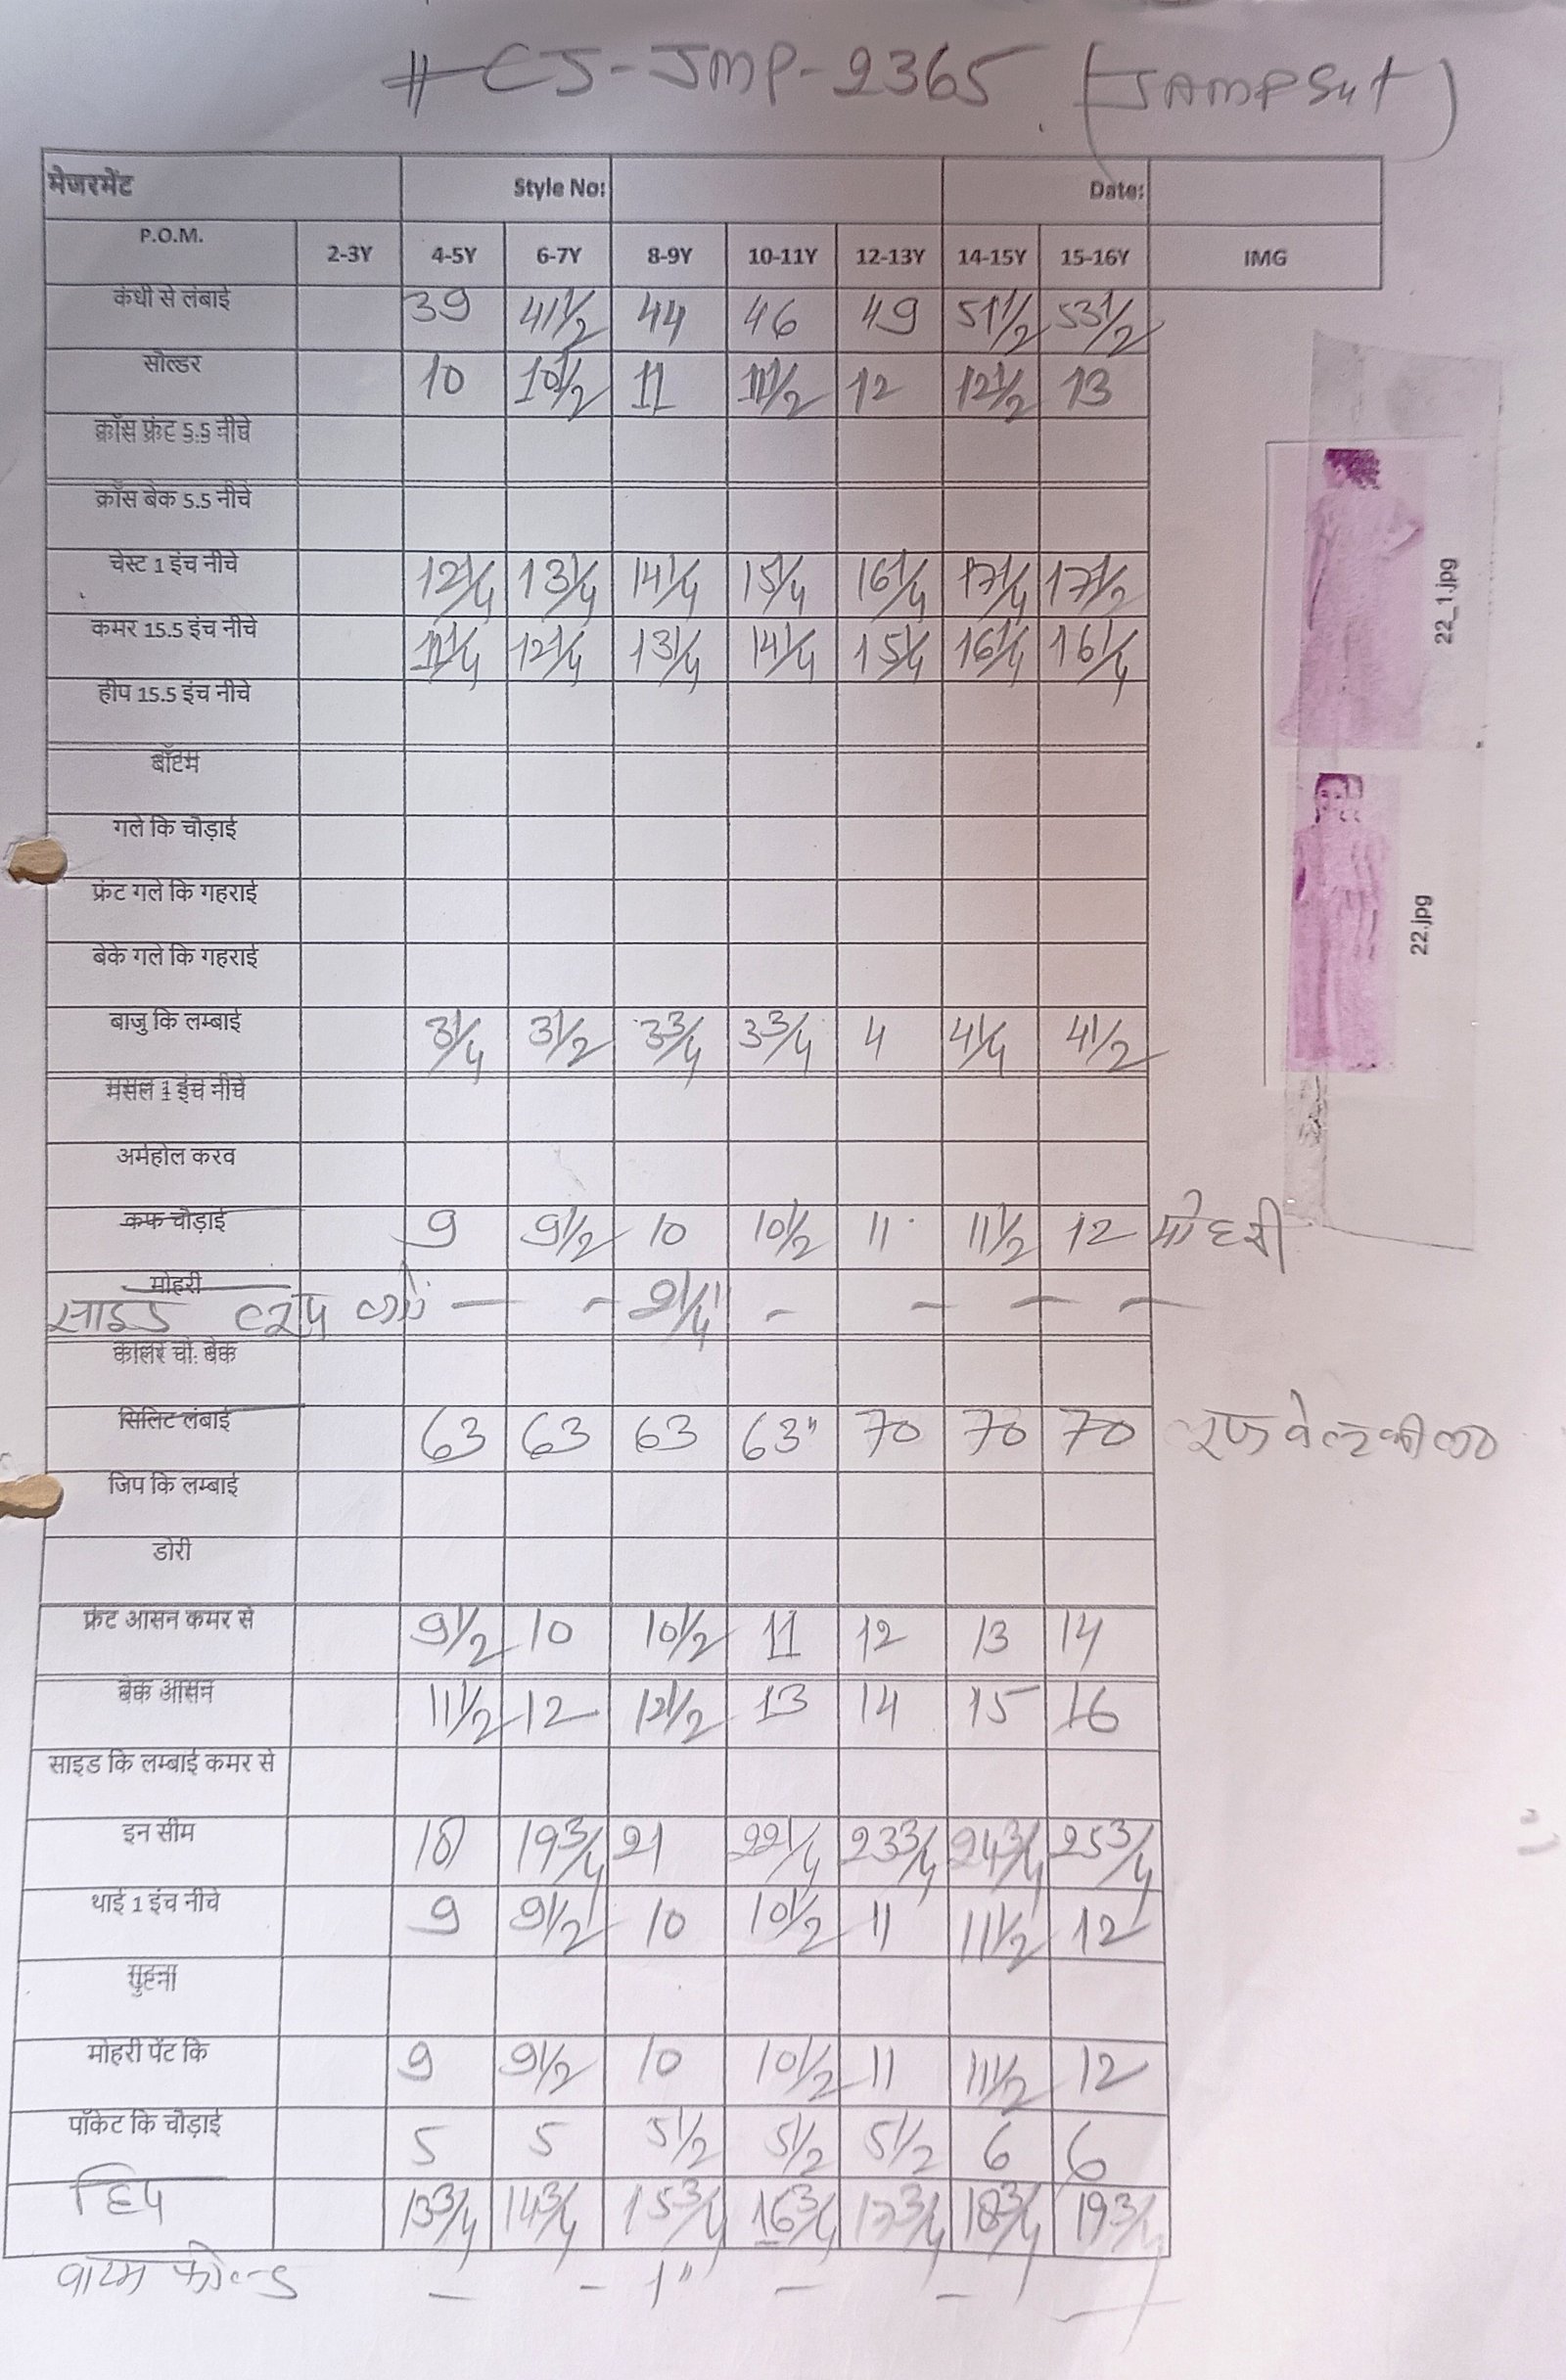 # CJ-JMP-2365 (JAMPSut)
मेजरमेंट Style No: Date:
P.O.M. 2-3Y 4-5Y 6-7Y 8-9Y 10-11Y 12-13Y 14-15Y 15-16Y IMG
कंधी से लंबाई 39 41 1/2 44 46 49 51 1/2 53 1/2
सौल्डर 10 10 1/2 11 11 1/2 12 12 1/2 13
क्रॉस फ्रंट 5.5 नीचे
क्रॉस बेक 5.5 नीचे
चेस्ट 1 इंच नीचे 12 1/4 13 1/4 14 1/4 15 1/4 16 1/4 17 1/4 17 1/2
कमर 15.5 इंच नीचे 11 1/4 12 1/4 13 1/4 14 1/4 15 1/4 16 1/4 16 1/4
हीप 15.5 इंच नीचे
बॉटम
गले कि चौड़ाई
फ्रंट गले कि गहराई
बेके गले कि गहराई
बाजु कि लम्बाई 3 1/4 3 1/2 3 3/4 3 3/4 4 4 1/4 4 1/2
मसल 1 इंच नीचे
अर्महोल करव
कफ चौड़ाई 9 9 1/2 10 10 1/2 11 11 1/2 12 मोहरी
मोहरी
साइड - - 2 1/4" - - - -
कालर चौ. बेक
सिलिट लंबाई 63 63 63 63" 70 70 70
जिप कि लम्बाई
डोरी
फ्रंट आसन कमर से 9 1/2 10 10 1/2 11 12 13 14
बेक आसन 11 1/2 12 12 1/2 13 14 15 16
साइड कि लम्बाई कमर से
इन सीम 18 19 3/4 21 22 1/4 23 3/4 24 3/4 25 3/4
थाई 1 इंच नीचे 9 9 1/2 10 10 1/2 11 11 1/2 12
घुटना
मोहरी पेंट कि 9 9 1/2 10 10 1/2 11 11 1/2 12
पॉकेट कि चौड़ाई 5 5 5 1/2 5 1/2 5 1/2 6 6
हिप 13 3/4 14 3/4 15 3/4 16 3/4 17 3/4 18 3/4 19 3/4
वाटम फोल्ड - - 1" - - -
22_1.jpg
22.jpg